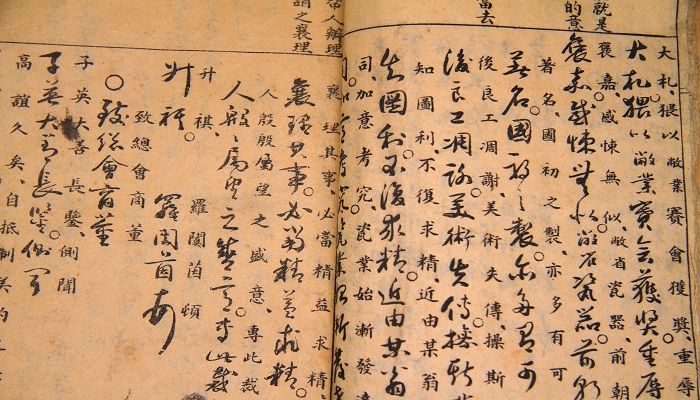 就是
的意
當去
大札猥以敝業賽會獲獎重辱
大札猥以敝業賽會獲獎重辱
褒嘉感悚無似敝省瓷器前朝
褒嘉感悚無似敝省瓷器前朝
著名國初之製亦多有可
著名國初之製亦多有可
後良工凋謝美術失傳操斯
後良工凋謝美術失傳操斯
知圖利不復求精近由某翁
知圖利不復求精近由某翁
司加意考究瓷業始漸發達
司加意考究瓷業始漸發達
人辦理
謂之襄理
襄理其事必當精益求精
襄理其事必當精益求精
人殷殷屬望之盛意專此裁
人殷殷屬望之盛意專此裁
升祺 羅閬茵頓
升祺 羅閬茵頓
致總會商董
致總會商董
子英大善長鑒側聞
子英大善長鑒側聞
高誼久矣自抵制美約